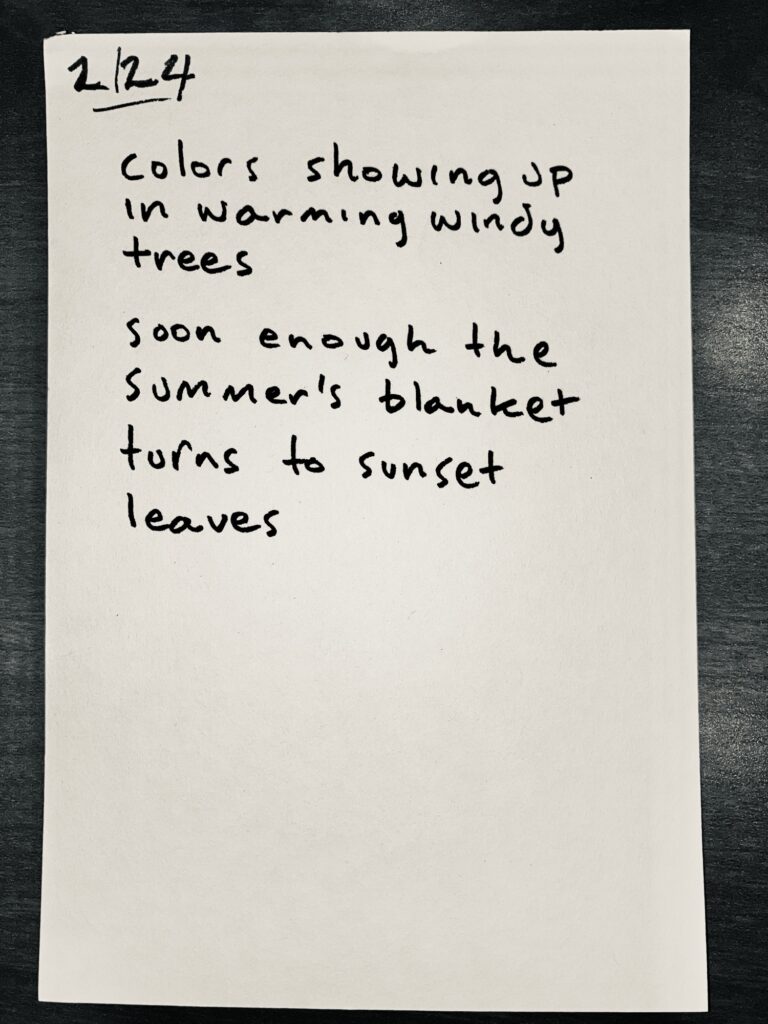 2/24
colors showing up
in warming windy
trees
soon enough the
summer's blanket
turns to sunset
leaves